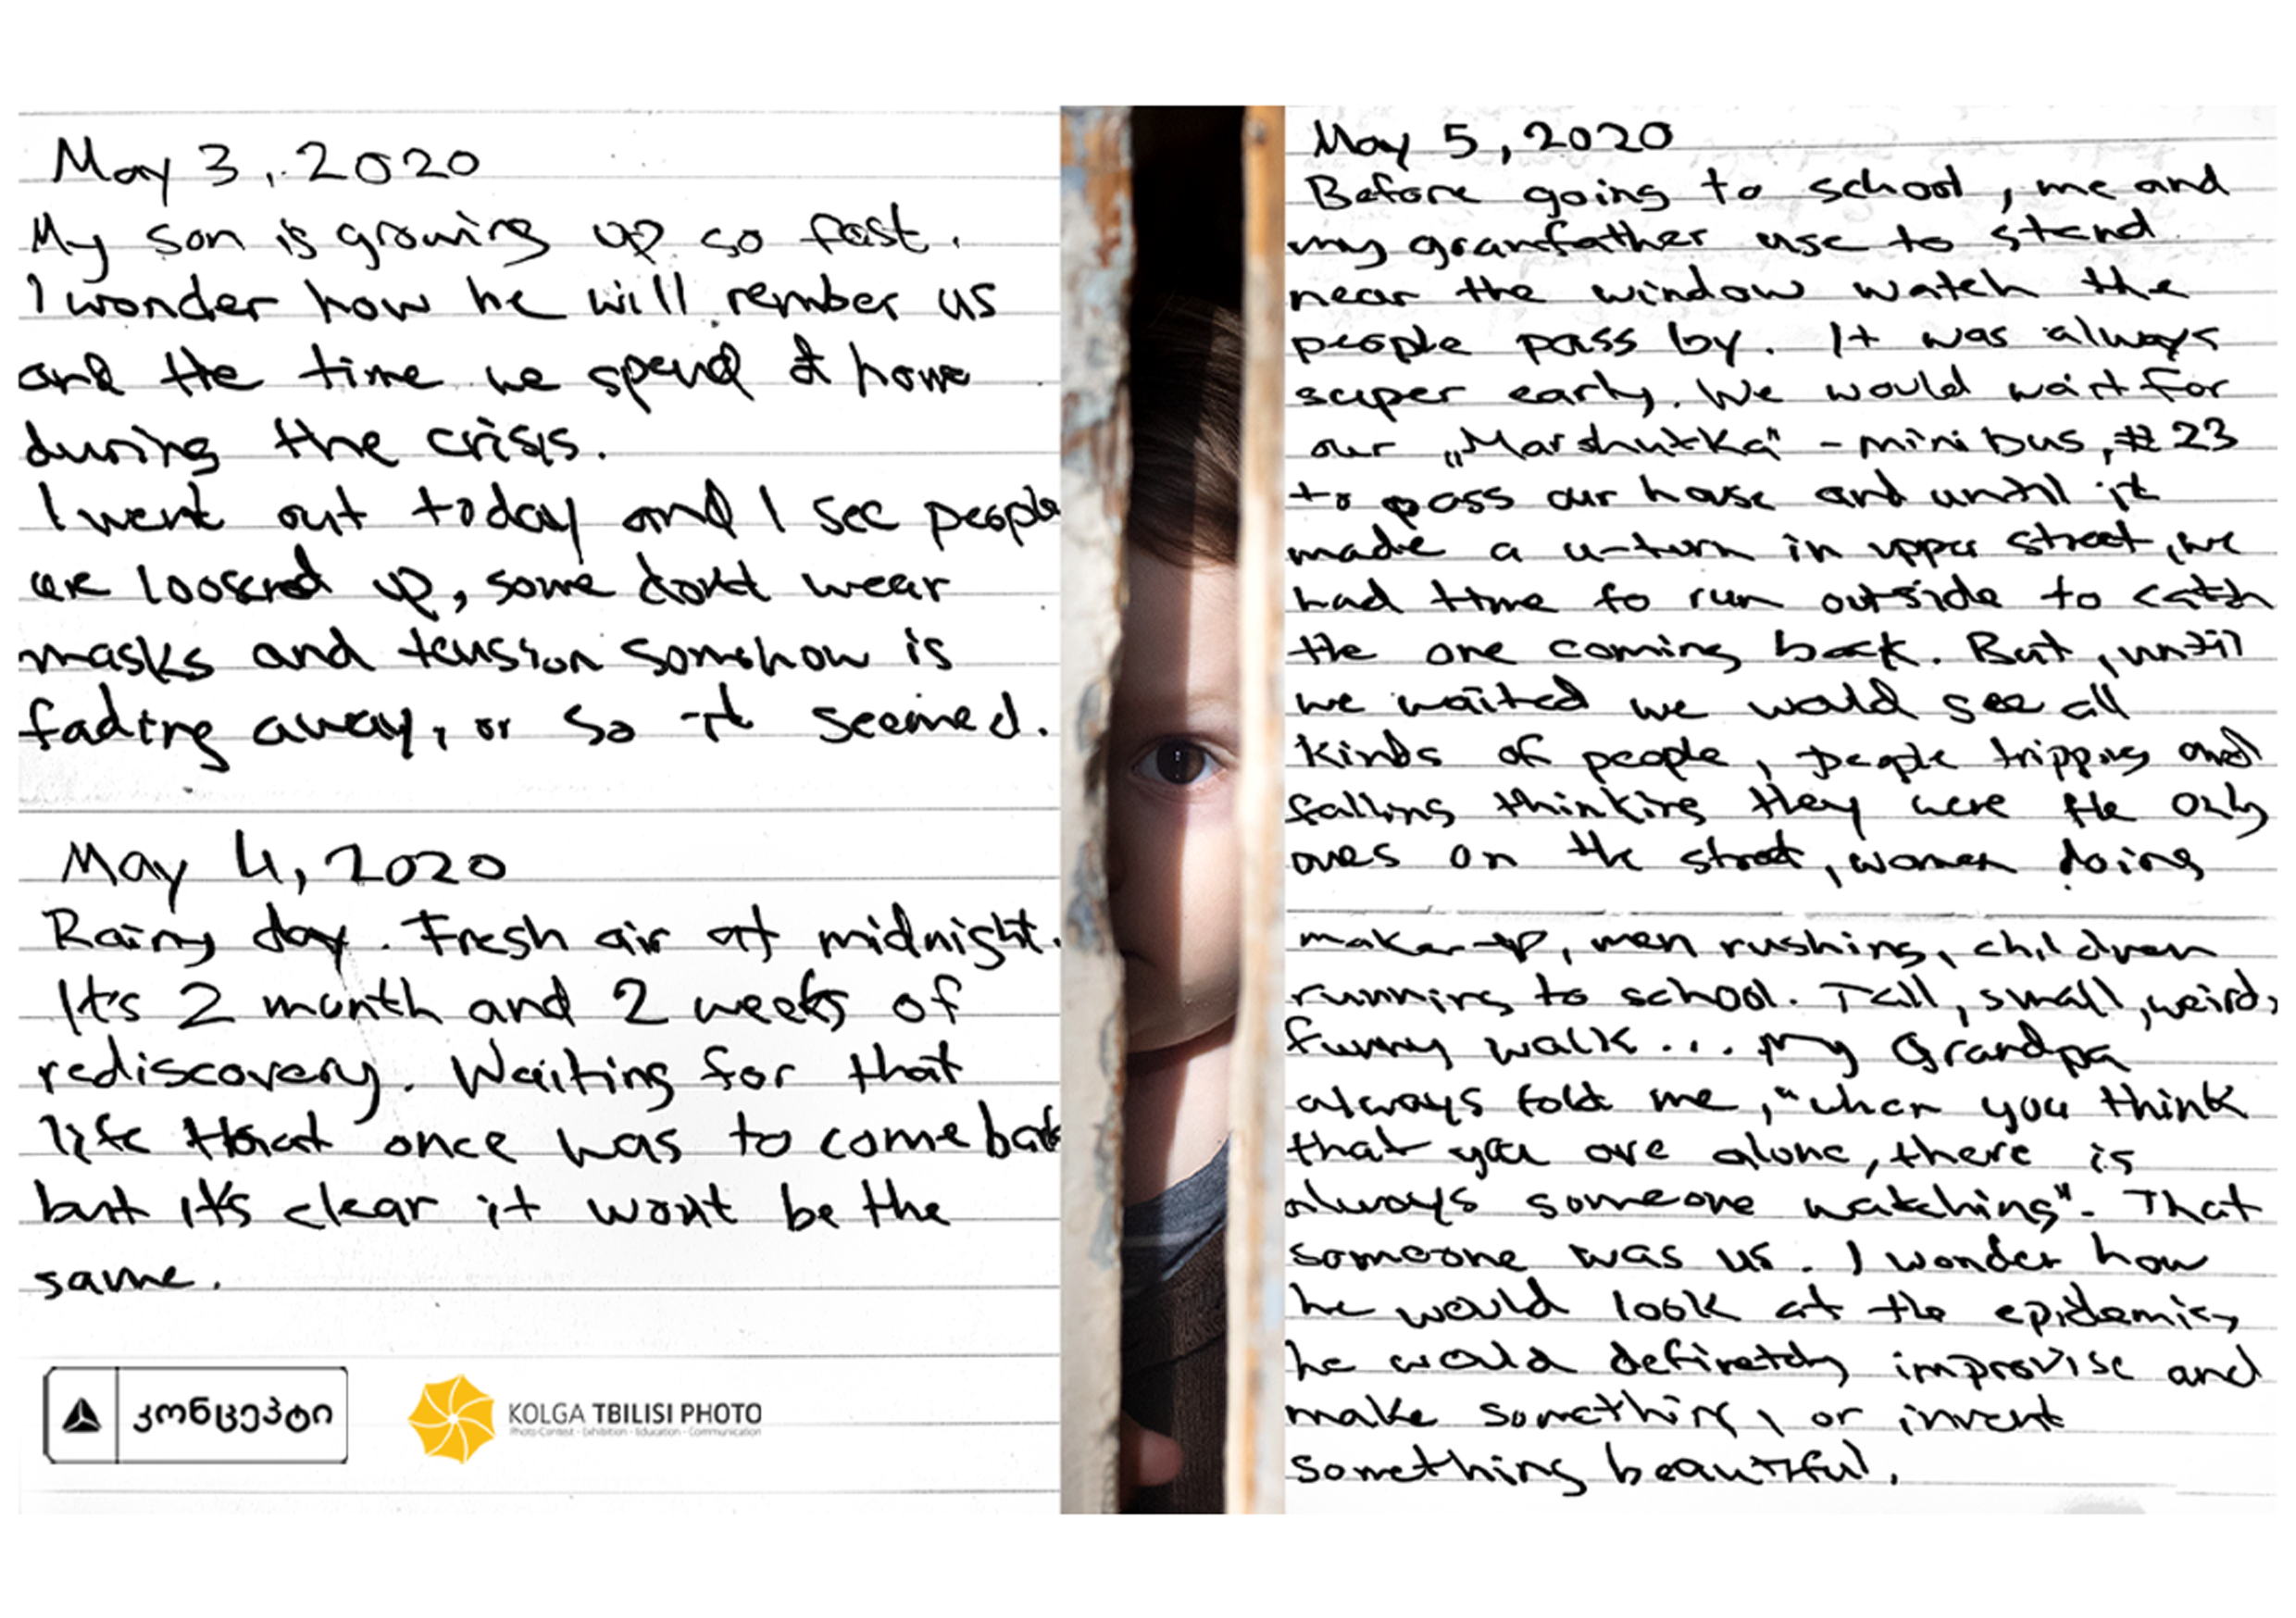 May 3, 2020
My son is growing up so fast.
I wonder how he will rember us
and the time we spend at home
during the crisis.
I went out today and I see people
are loosend up, some don't wear
masks and tension somehow is
fading away, or so it seemed.
May 4, 2020
Rainy day. Fresh air at midnight.
It's 2 month and 2 weeks of
rediscovery. Waiting for that
life that once was to come back
but it's clear it won't be the
same.
კონცეპტი
KOLGA TBILISI PHOTO
Photo Contest - Exhibition - Education - Communication
May 5, 2020
Before going to school, me and
my granfather use to stand
near the window watch the
people pass by. It was always
super early. We would wait for
our „Marshutka" - minibus, #23
to pass our house and until it
made a u-turn in upper street, we
had time to run outside to catch
the one coming back. But, until
we waited we would see all
kinds of people, people tripping and
falling thinking they were the only
ones on the street, women doing
make-up, men rushing, children
running to school. Tall, small, weird,
funny walk... My Grandpa
always told me, "when you think
that you are alone, there is
always someone watching". That
someone was us. I wonder how
he would look at the epidemic,
he would definetely improvise and
make something, or invent
something beautiful.